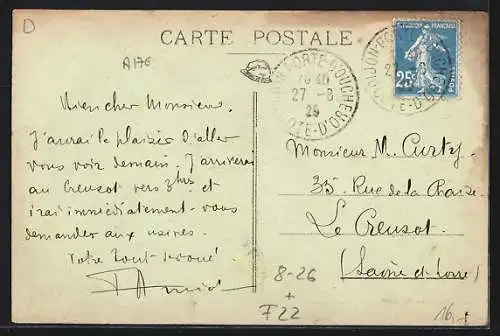 D
A176
CARTE POSTALE
DIJON-PORTE-DOUCHEROT
27-8
25
COTE-D'OR
25c
POSTES
Mon cher Monsieur.
J'aurai le plaisir d'aller
vous voir demain. J'arriverai
au Creusot vers 3hrs et
irai immédiatement vous
demander aux usines.
Votre tout dévoué
Monsieur M. Curty
35 Rue de la Chaise
Le Creusot.
(Saône et Loire)
8-26
+
F22
16,-